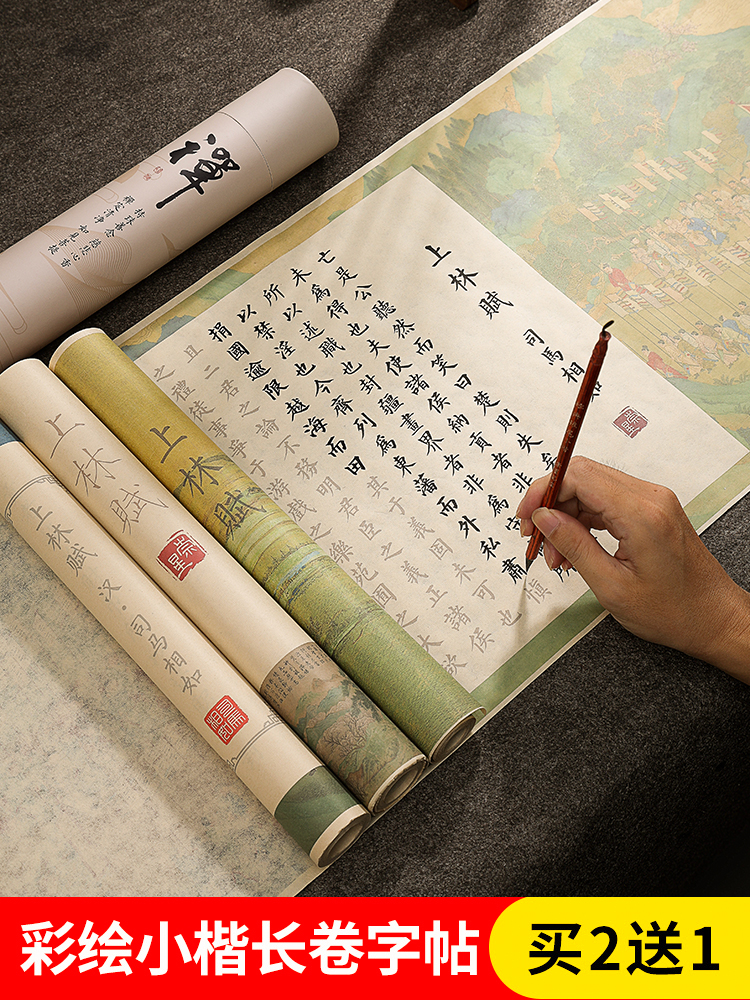 禪
上林賦
司馬相
亡是公聽然而笑曰楚則失矣
未為得也夫使諸侯納貢者非為
所以述職也封疆畫界者非為守
以禁淫也今齊列為東藩而外私肅慎
捐國逾限越海而田其于義固未可也
且二君之論不務明君臣之義正諸侯
之禮徒事爭于游戲之樂苑之大欲
上林賦
上林賦
上林賦
汉·司马相如
彩绘小楷长卷字帖
买2送1